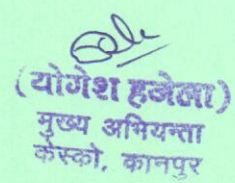 (योगेश हजेला)
मुख्य अभियन्ता
केस्को, कानपुर